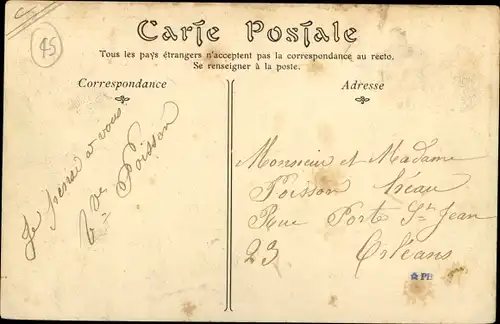 45
Carte Postale
Tous les pays étrangers n'acceptent pas la correspondance au recto.
Se renseigner à la poste.
Correspondance
Adresse
Je pense a vous
Vve Poisson
Monsieur et Madame
Poisson Créau
Rue Porte St Jean
23 Orléans
PB